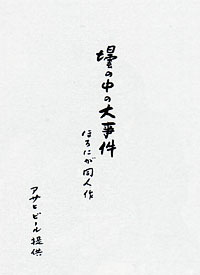 壜の中の大事件
ほろにが同人作
アサヒビール提供